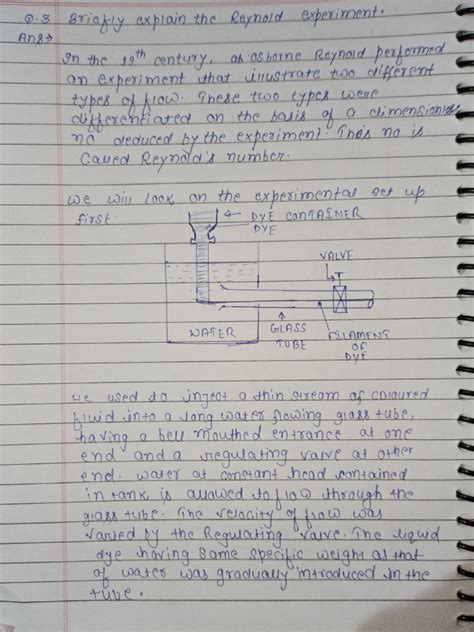 Q.3 Briefly explain the Reynold experiment.
Ans→
In the 19th century, ob osborne Reynold performed
an experiment that illustrate two different
types of flow. These two types were
differentiated on the basis of a dimensionless
no deduced by the experiment. This no is
Called Reynold's number.
we will look on the experimental set up
first
DYE CONTAINER
DYE
VALVE
WATER
GLASS
TUBE
FILAMENT
OF
DYE
He used to inject a thin stream of coloured
fluid into a long water flowing glass tube,
having a bell mouthed entrance at one
end and a regulating valve at other
end. water at constant head contained
in tank is allowed to flow through the
glass tube. The velocity of flow was
varied by the Regulating valve. The liquid
dye having same specific weight as that
of water was gradually introduced in the
tube.